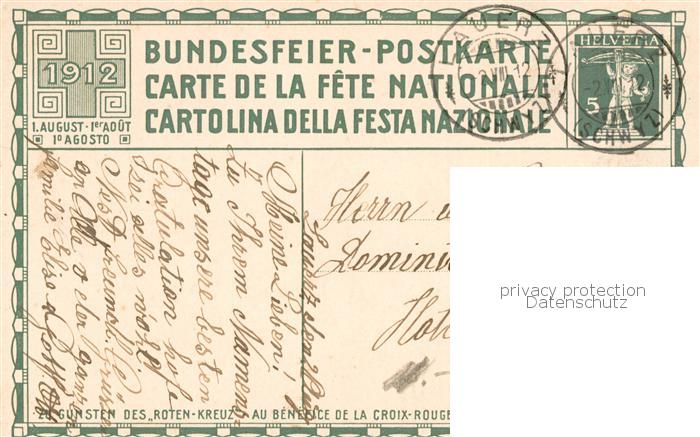 1912
1. AUGUST - 1er AOÛT
1º AGOSTO
BUNDESFEIER-POSTKARTE
CARTE DE LA FÊTE NATIONALE
CARTOLINA DELLA FESTA NAZIONALE
LAUERZ
(SCHWYZ)
LAUERZ
-2.VIII.12
(SCHWYZ)
HELVETIA
5
Herrn u
Domini
Hot
Lauerz den
Meine Lieben!
Zu Ihrem Namens-
tage unsere besten
Gratulation hoffe
sei alles wohl
Nebst freundl. Grüssen
an Alle v. der ganzen
Familie Elise
ZU GUNSTEN DES „ROTEN-KREUZ“ - AU BÉNÉFICE DE LA CROIX-ROUGE
privacy protection
Datenschutz